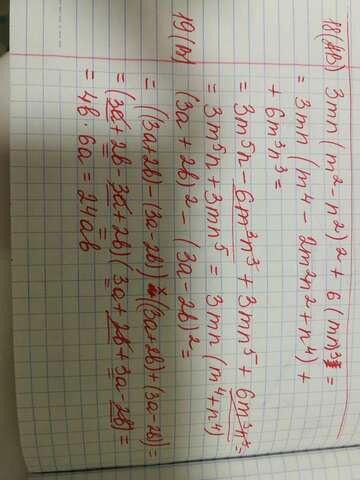 18(Ab) 3mn (m² - n²)² + 6 (mn)³ =
= 3mn (m⁴ - 2m²n² + n⁴) +
+ 6m³n³ =
= 3m⁵n - 6m³n³ + 3mn⁵ + 6m³n³ =
= 3m⁵n + 3mn⁵ = 3mn (m⁴ + n⁴)
19(b) (3a + 2b)² - (3a - 2b)² =
= ((3a + 2b) - (3a - 2b)) ((3a + 2b) + (3a - 2b)) =
= (3a + 2b - 3a + 2b) (3a + 2b + 3a - 2b) =
= 4b · 6a = 24ab